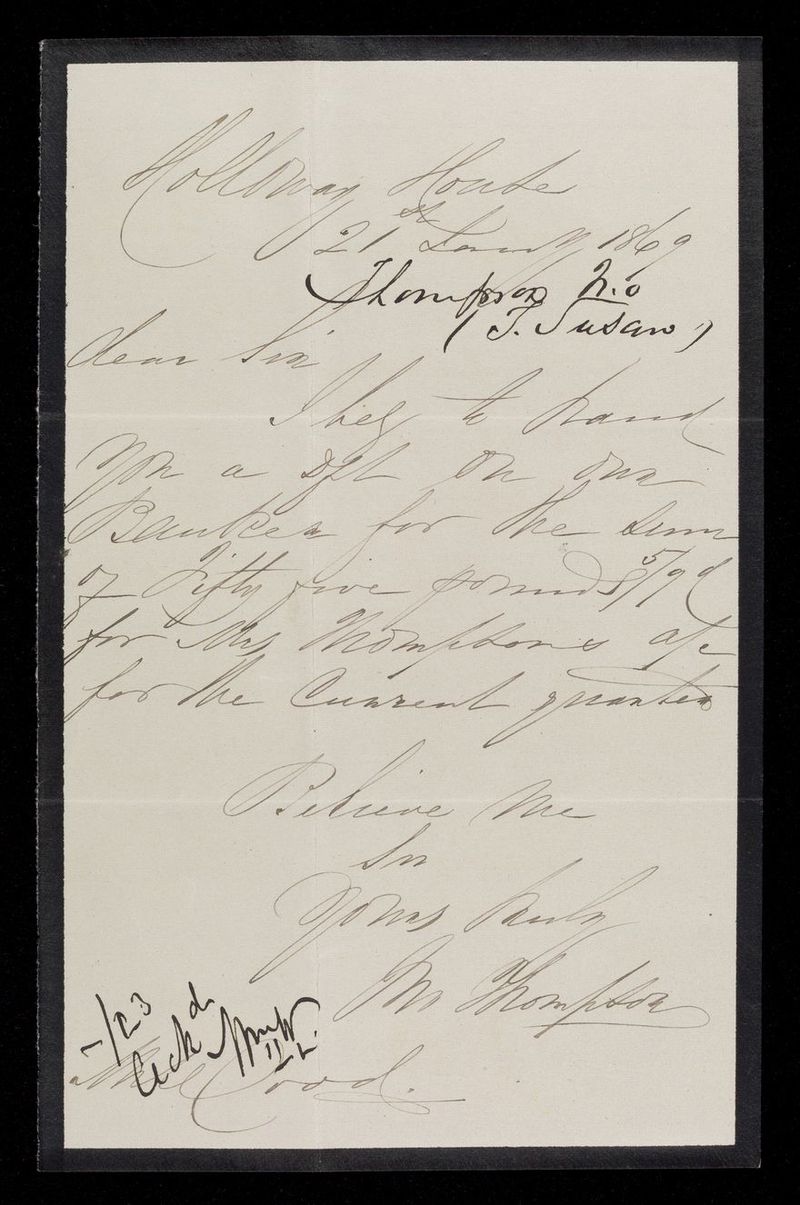 Holloway House
21st Jany 1869
Thompson Wm
(T. Susan)
Dear Sir
I beg to hand
you a dft on our
Bankers for the sum
of Fifty five pounds 5/9d
for Mrs Thompson's a/c
for the Current quarter
Believe me
Sir
Yours truly
Wm Thompson
1/23
Ackd
Wood.